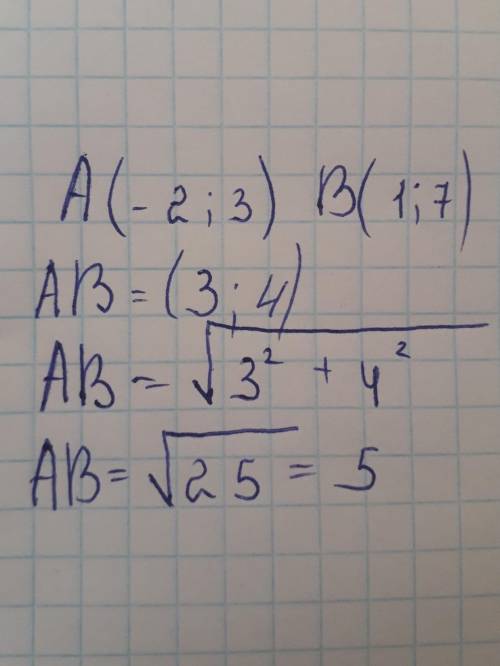 A(-2;3) B(1;7)
AB=(3;4)
AB=√3²+4²
AB=√25=5